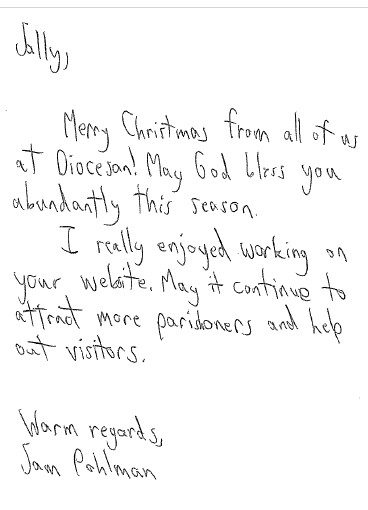 Sally,
Merry Christmas from all of us
at Diocesan! May God bless you
abundantly this season.
I really enjoyed working on
your website. May it continue to
attract more parishoners and help
out visitors.
Warm regards,
Sam Pohlman